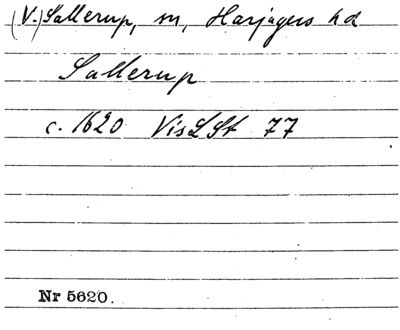 (V.) Sallerup, sn, Harjagers hd
Sallerup
c. 1620 VisLSt 77
Nr 5620.